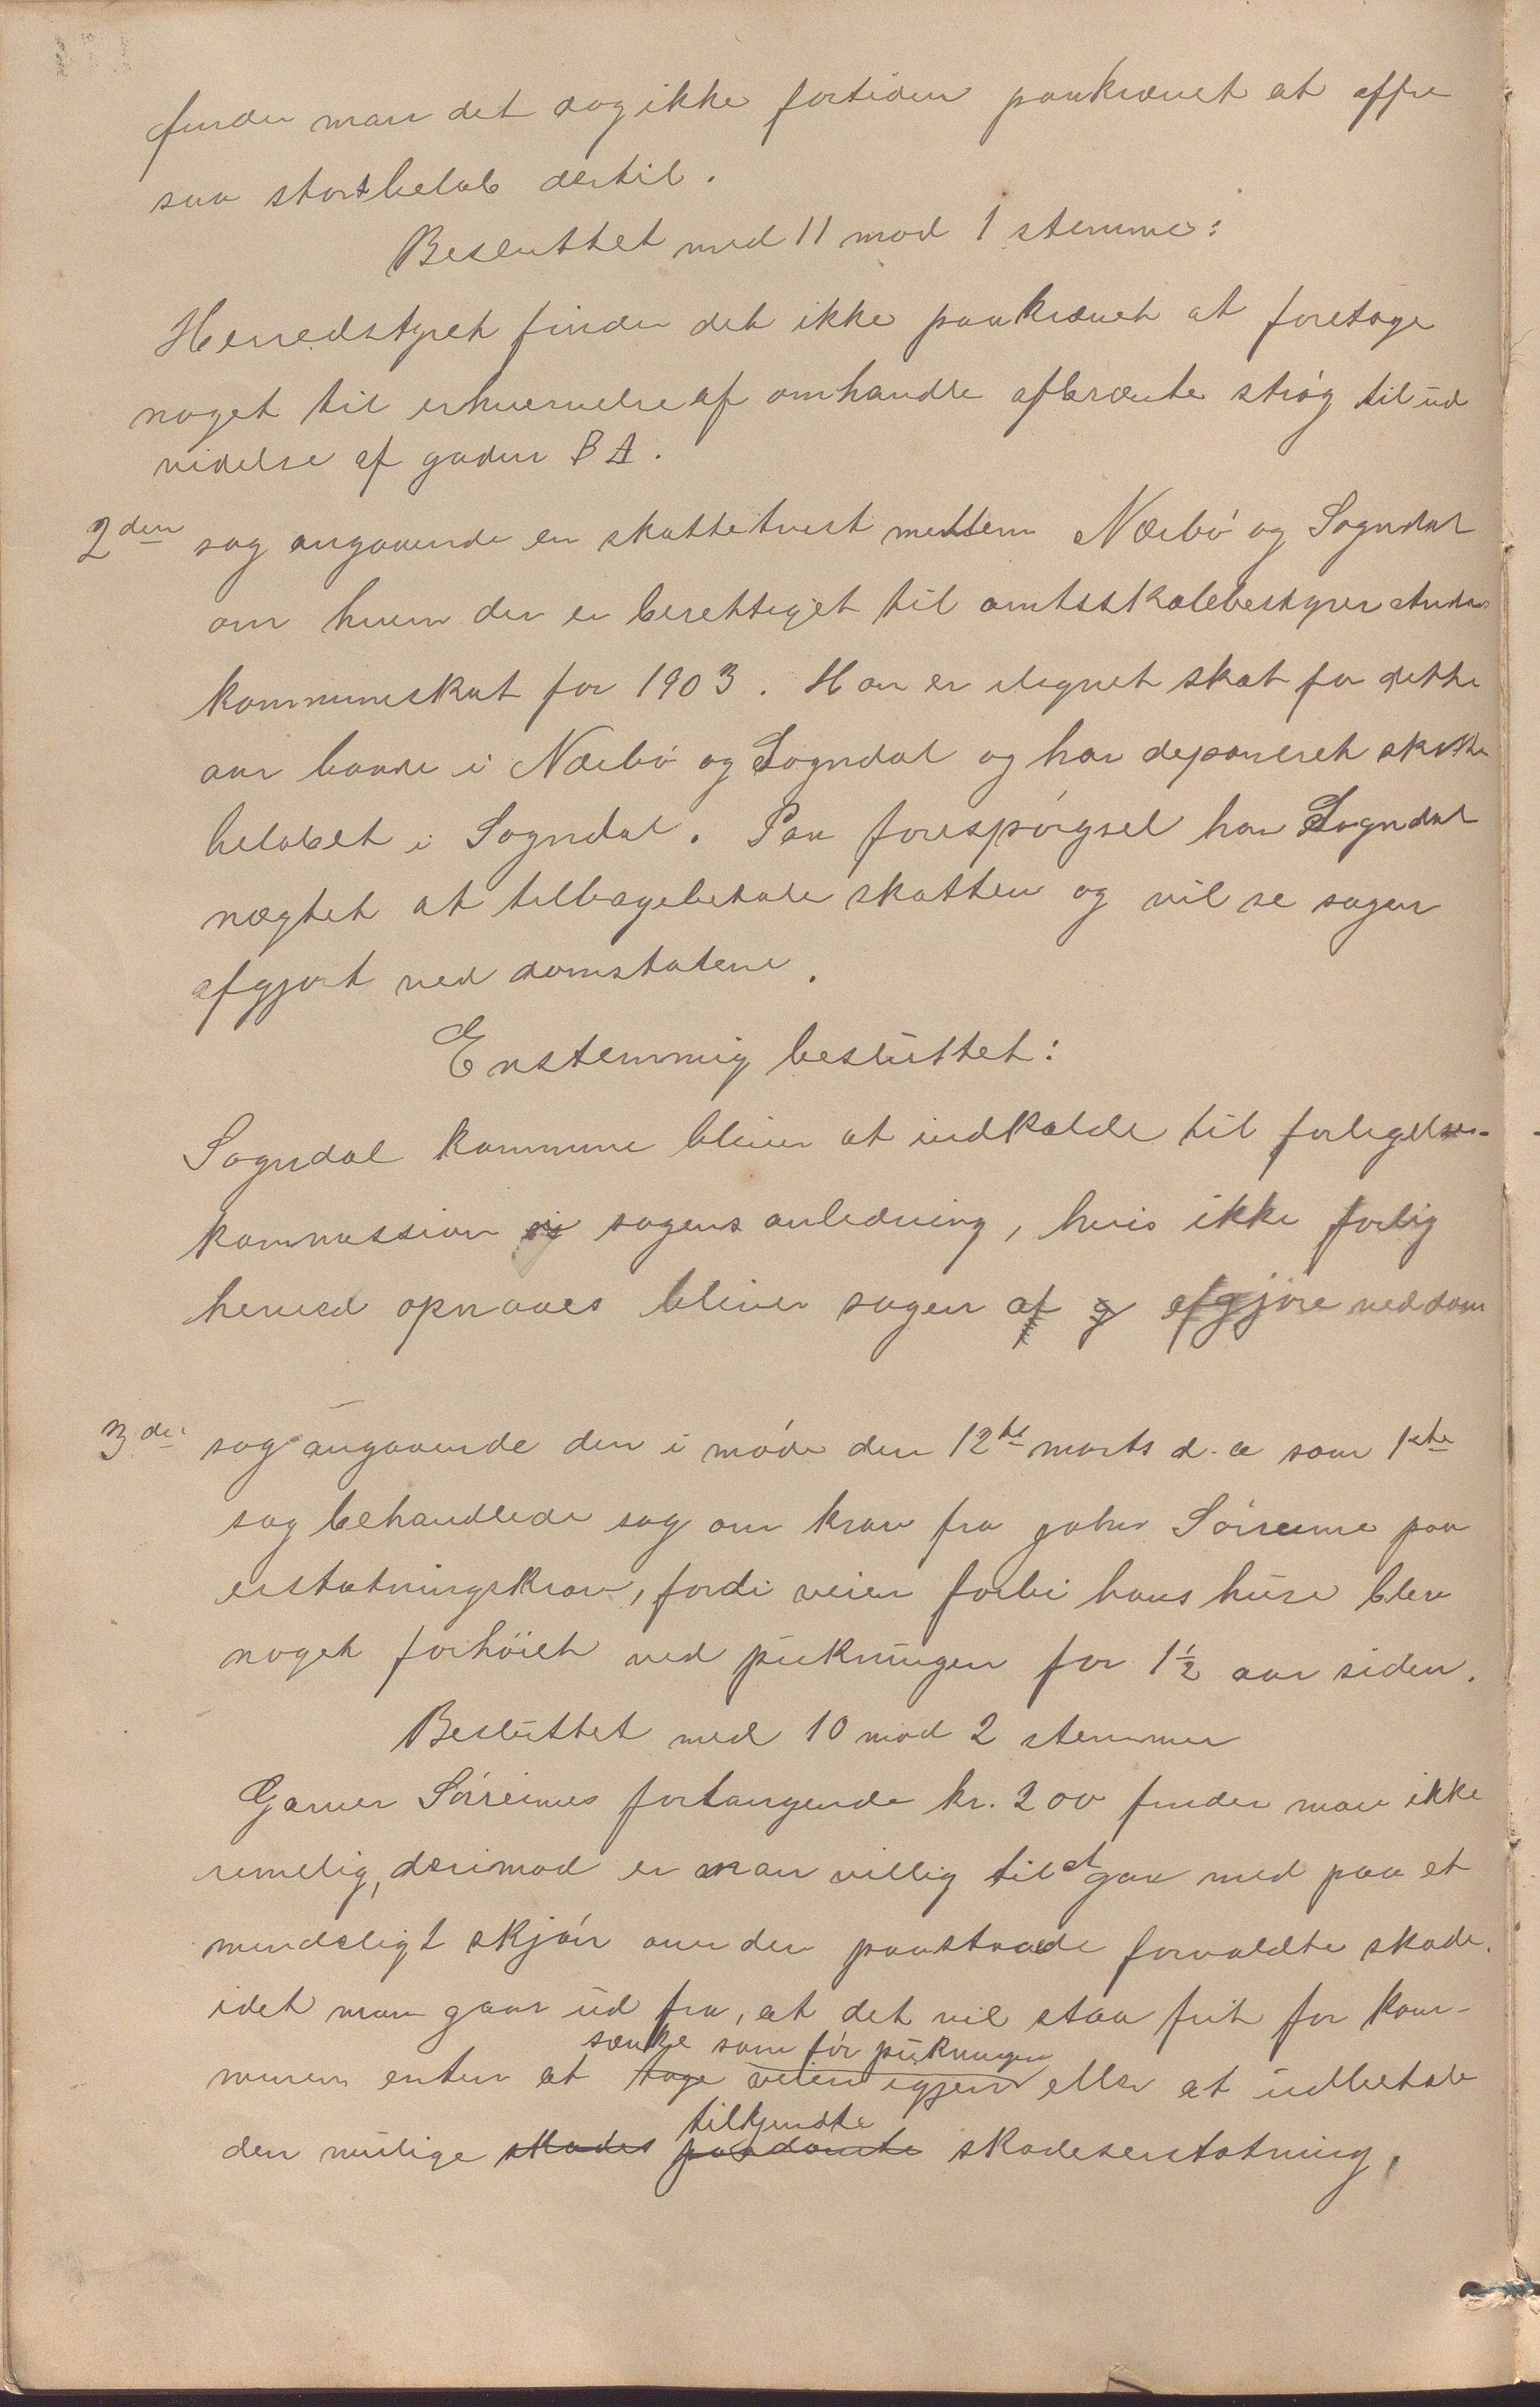 finder man det dog ikke fortiden paakrævet at offre
saa stort beløb dertil.
Besluttet med 11 mod 1 stemme:
Herredstyret finder det ikke paakrævet at foretage
noget til erhvervelse af omhandle afbrænte strøg til ud
videlse af gaden B A.
2den sag angaaende en skattetvist mellem Nærbø og Sogndal
om hvem der er berettiget til amtsskolebestyrer
kommuneskat for 1903. Han er ilignet skat for dette
aar baade i Nærbø og Sogndal og har deponeret skatte
beløbet i Sogndal. Paa forespørgsel har Sogndal
nægtet at tilbagebetale skatten og vil se sagen
afgjort ved domstolene.
Enstemmig besluttet:
Sogndal kommune bliver at indkalde til forligelses-
kommission i sagens anledning, hvis ikke forlig
herved opnaaes bliver sagen at afgjøre ved dom
3die sag angaaende den i møde den 12te marts d. a som 1ste
sag behandlede sag om krav fra Sørreime paa
erstatningskrav, fordi veien forbi hans huse blev
noget forhøiet ved pukningen for 1½ aar siden.
Besluttet med 10 mod 2 stemmer
Garver Sørreimes forlangende kr. 200 finder man ikke
rimelig, derimod er man villig til at gaa med paa et
mindeligt skjøn over den paastaaede forvoldte skade.
idet man gaar ud fra, at det vil staa frit for kom-
sænke som før pukningen
munen enten at tage veien igjen eller at udbetale
tilkjendte
den mulige skades paadømte skadeserstatning.